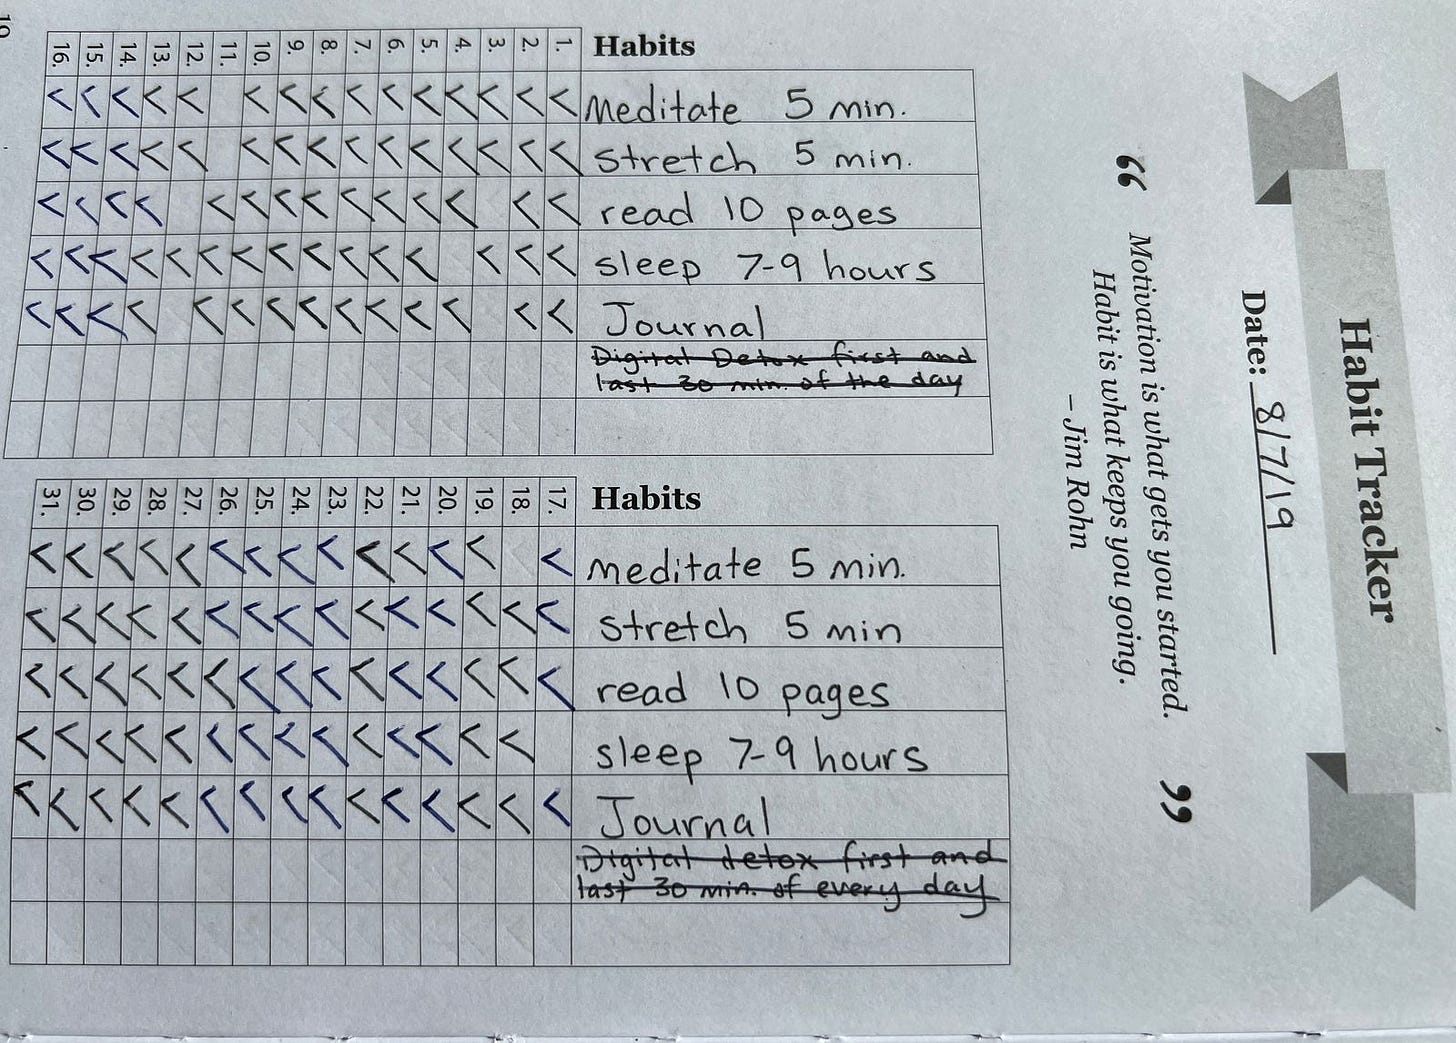 Habit Tracker
Date: 8/7/19
“ Motivation is what gets you started.
Habit is what keeps you going. ”
– Jim Rohn
16. 15. 14. 13. 12. 11. 10. 9. 8. 7. 6. 5. 4. 3. 2. 1. Habits
Meditate 5 min.
stretch 5 min.
read 10 pages
sleep 7-9 hours
Journal
Digital Detox first and
last 30 min. of the day
31. 30. 29. 28. 27. 26. 25. 24. 23. 22. 21. 20. 19. 18. 17. Habits
meditate 5 min.
stretch 5 min
read 10 pages
sleep 7-9 hours
Journal
Digital detox first and
last 30 min. of every day